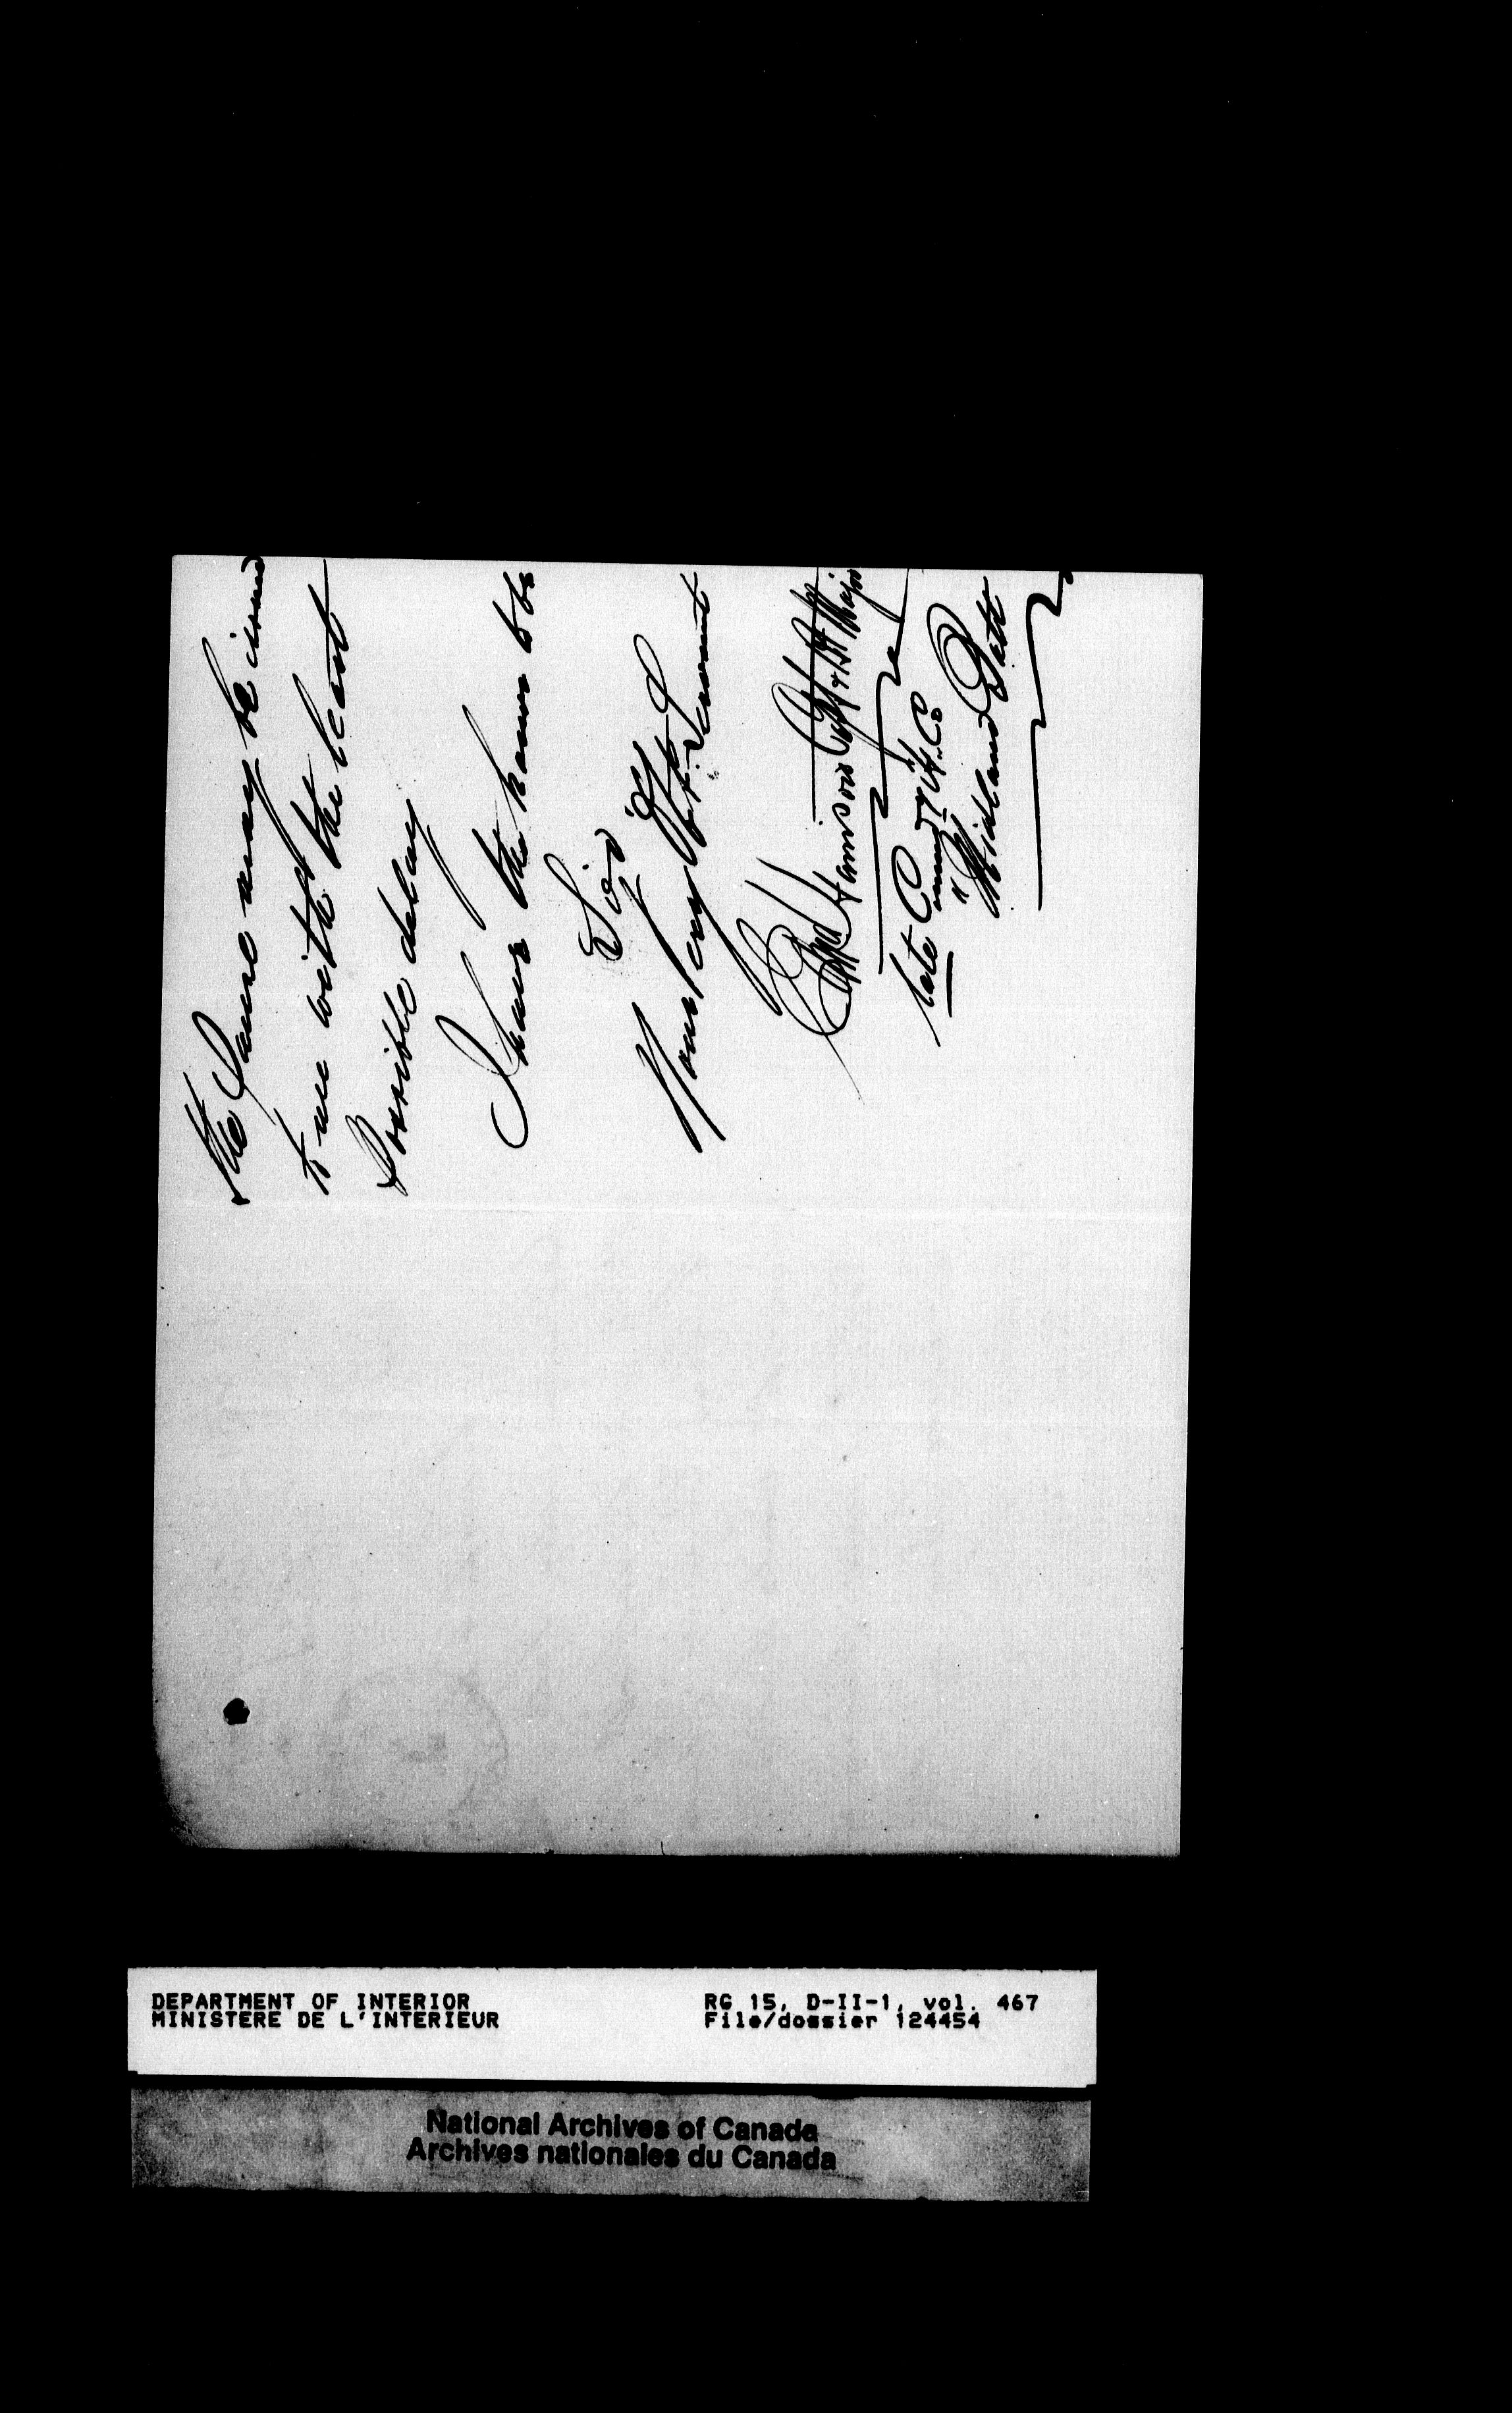 the Same may be issued
to me with the least
Possible delay
I have the honor to be
Sir
Your
Obt Servant
Harrison Capt & Bt Major
late Comdg "H" Co
" Midland Batt
DEPARTMENT OF INTERIOR
MINISTERE DE L'INTERIEUR
RG 15, D-II-1, vol. 467
File/dossier 124454
National Archives of Canada
Archives nationales du Canada